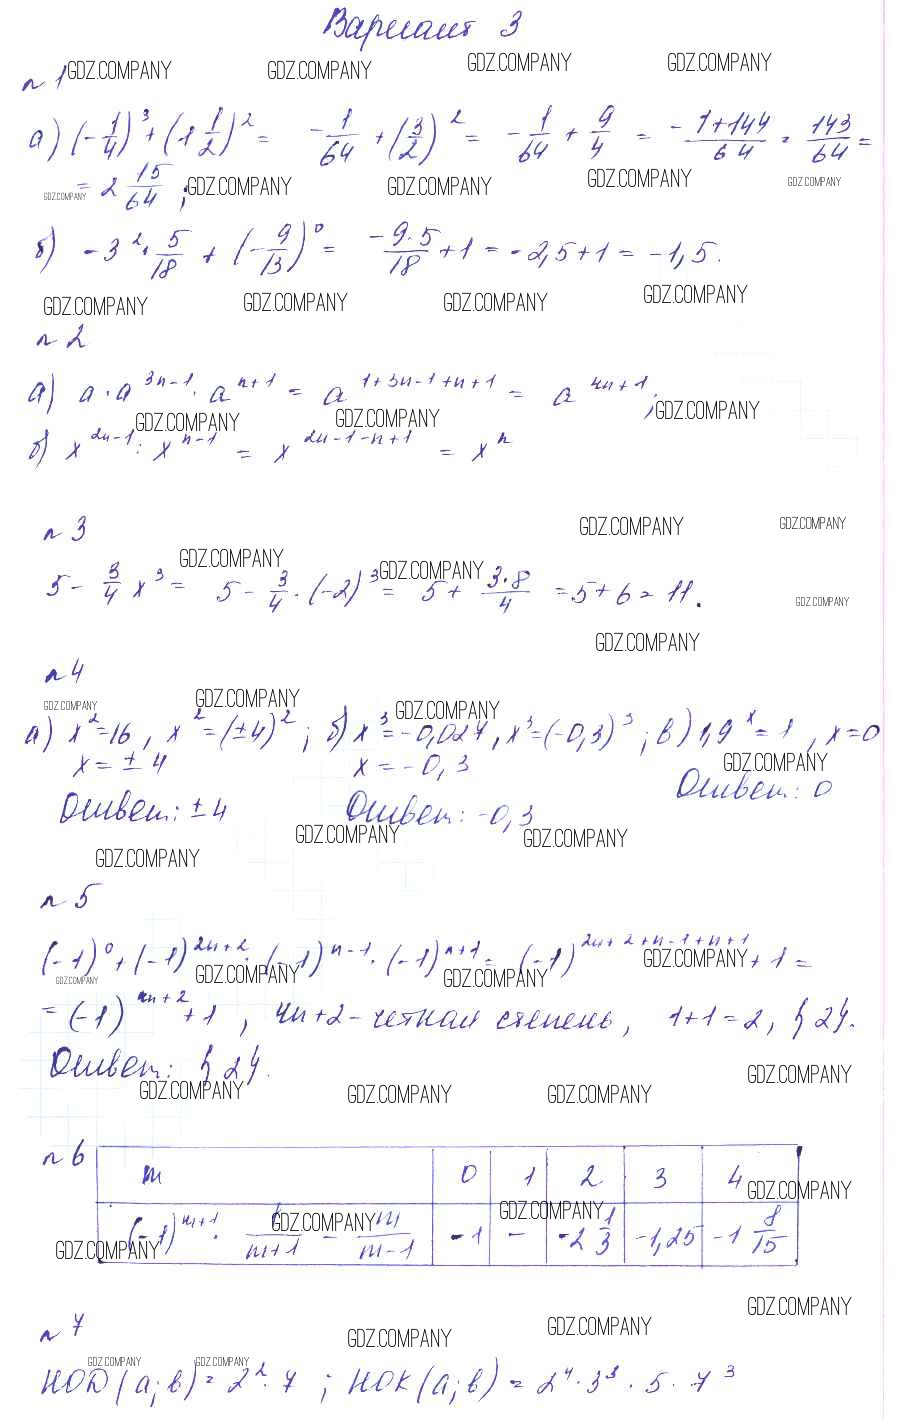 Вариант 3
GDZ.COMPANY GDZ.COMPANY GDZ.COMPANY GDZ.COMPANY
n 1
а) (-1/4)^3 + (1 1/2)^2 = -1/64 + (3/2)^2 = -1/64 + 9/4 = -1+144/64 = 143/64 =
= 2 15/64 ;
GDZ.COMPANY GDZ.COMPANY GDZ.COMPANY GDZ.COMPANY GDZ.COMPANY
б) -3^2 · 5/18 + (-9/13)^0 = -9·5/18 + 1 = -2,5+1 = -1,5.
GDZ.COMPANY GDZ.COMPANY GDZ.COMPANY GDZ.COMPANY
n 2
а) a · a^3n-1 · a^n+1 = a^1+3n-1+n+1 = a^4n+1 ;
GDZ.COMPANY GDZ.COMPANY GDZ.COMPANY
б) x^2n-1 : x^n-1 = x^2n-1-n+1 = x^n
n 3
GDZ.COMPANY GDZ.COMPANY
GDZ.COMPANY GDZ.COMPANY
5 - 3/4 x^3 = 5 - 3/4 · (-2)^3 = 5 + 3·8/4 = 5+6 = 11.
GDZ.COMPANY
GDZ.COMPANY
n 4
GDZ.COMPANY GDZ.COMPANY GDZ.COMPANY
а) x^2=16, x^2=(±4)^2 ; б) x^3=-0,027, x^3=(-0,3)^3 ; в) 1,9^x=1, x=0
x = ±4 x = -0,3
GDZ.COMPANY
Ответ: ±4 Ответ: -0,3 Ответ: 0
GDZ.COMPANY GDZ.COMPANY
GDZ.COMPANY
n 5
(-1)^0 + (-1)^2n+2 · (-1)^n-1 · (-1)^n+1 = (-1)^2n+2+n-1+n+1 + 1 =
GDZ.COMPANY GDZ.COMPANY GDZ.COMPANY GDZ.COMPANY
= (-1)^4n+2 + 1, 4n+2 - четная степень, 1+1=2, {2}.
Ответ: {2}.
GDZ.COMPANY GDZ.COMPANY GDZ.COMPANY GDZ.COMPANY
n 6
m 0 1 2 3 4
GDZ.COMPANY
(-1)^m+1 · /m+1 - m/m-1 -1 - -2 1/3 -1,25 -1 8/15
GDZ.COMPANY GDZ.COMPANY GDZ.COMPANY
GDZ.COMPANY
n 7
GDZ.COMPANY GDZ.COMPANY
GDZ.COMPANY GDZ.COMPANY
НОД (a;в) = 2^2 · 7 ; НОК (a;в) = 2^4 · 3^3 · 5 · 7^3